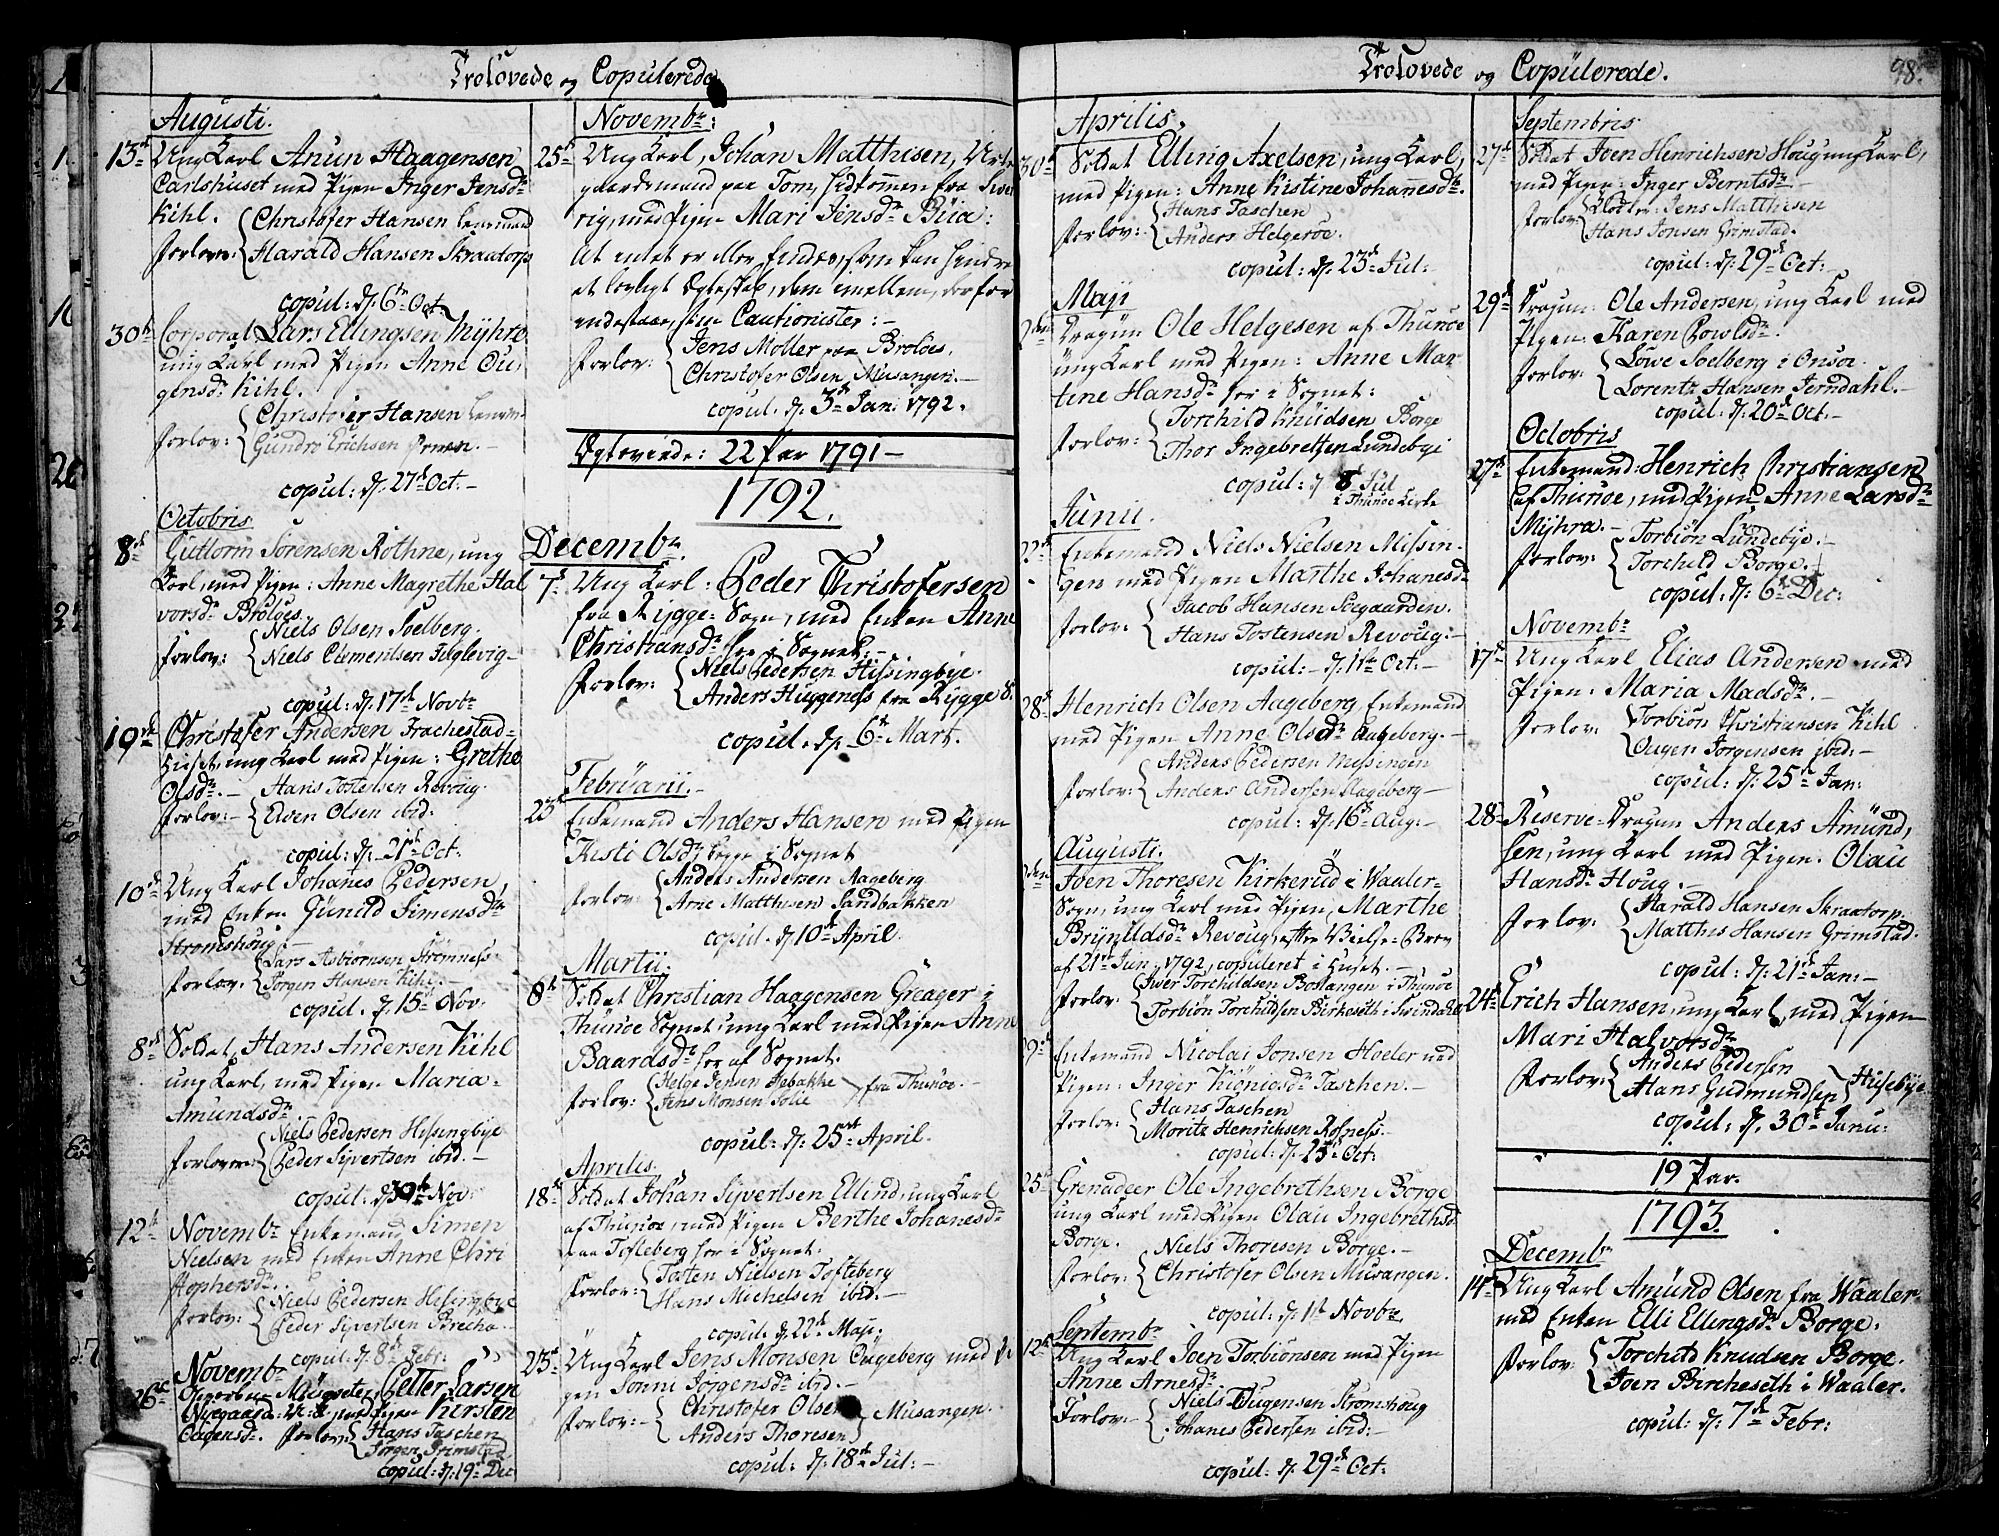 Trolovede og Copulerede
Augusti.
13de Ung Karl Anun Haagensen
Carlshuset med Pigen Inger Jensdr
Kihl.
Forlovere: Christofer Hansen Lensmand
Harald Hansen Skraatorp
copul: d: 6te Oct.
30te Corporal Lars Ellingsen Myhre
ung Karl med Pigen Anne Ou-
gensdr Kihl.
Forlov: Christofer Hansen Lensm:
Gundro Erichsen
copul: d: 27de Oct:-
Octobris
8de Guttorm Sørensen Rothne, ung
Karl, med Pigen: Anne Magrethe Hal
vorsdr Broløes.
Forlov: Niels Olsen Soelberg.
Niels Clementsen Fuglevig-
copul: d: 17de Novbr
19de Christofer Andersen Trachestad-
Huset, ung Karl med Pigen: Grethe
Olsdr.-
Forlov:- Hans Tostensen Revoug.
Even Olsen ibid:
copul: d: 21de Oct:
10de Ung Karl Johanes Pedersen,
med Enken Gunild Simensdr
Strømshoug
Forlov. Lars Asbiørnsen Strømness
Jørgen Hansen Kihl.
copul. d. 15de Nov:
8de Soldat Hans Andersen Kihl
ung Karl, med Pigen Maria
Amundsdr.
Forlovere: Niels Pedersen Hissingbye
Peder Syvertsen ibid.-
copul: d: 30te Nov:
12te Novembr Enkemand Simen
Nielsen med Enken Anne Chri
stophersdr.
Forlov: Niels Pedersen Hissingbye
Peder Syvertsen Brecha
copul: d: 8de Febr:
Novembr
26de Petter Larsen
Nygaard med Pigen Kirsten
Oagensdr. Forlov: Hans Taschen
Jørgen Grimstad
copul: d: 19de Dec
Novembr:
25de Ung Karl, Johan Matthisen, Urte
gaardsmand paa Tom, hidkommen fra Sve
rig, med Pigen Mari Jensdr Büia:
At intet er eller findes, som kan hindre
et lovligt Egteskab, dem imellem, derfor
indestaar, som Cautionister:-
Forlov: Jens Møller paa Broløes.
Christofer Olsen Musangen.-
copul. d: 3de Jan: 1792.
Egteviede: 22 par 1791-
1792.
Decembr.
7de Ung Karl: Peder Christofersen
fra Rygge Sogn, med Enken Anne
Christiansdr her i Sognet:-
Forlov: Niels Pedersen Hissingbye.
Anders Huggenes fra Rygge S.
copul. d: 6te Mart.
Februarii.-
23de Enkemand Anders Hansen med Pigen
Kisti Olsdr, begge i Sognet
Forlov: Anders Andersen Aageberg
Arne Matthisen Sandbakken
copul. d: 10de April.
Martii.
8de Soldat Christian Haagensen Greager i
Thurøe Sognet ung Karl med Pigen Anne
Baardsdr her af Sognet.
Forlov: Helge Jensen Jebakke
Jens Monsen Jolie fra Thurøe.-
copul: d: 25de April.
Aprilis.
18de Soldat Johan Syvertsen Ellind, ung Karl
af Thurøe, med Pigen Berthe Johanesdr
paa Tofteberg her i Sognet.
Forlov: Tosten Nielsen Tofteberg
Hans Michelsen ibid.-
copul. d: 22de Maji
23de Ung Karl Jens Monsen Ougeberg med Pi
gen Sønni Jørgensdr ibid.
Forlov:- Christofer Olsen
Anders Thoresen Musangen.
copul: d: 18de Jul:-
Trolovede og Copulerede.
98.
Aprilis.
30te Soldat Elling Axelsen, ung Karl,
med Pigen: Anne Kistine Johanesdr.
Forlov:- Hans Taschen
Anders Helgerøe.
copul: d: 23de Jul:
Maji
2den Dragun Ole Helgesen af Thurøe
ung Karl med Pigen: Anne Mar
tine Hansdr her i Sognet:
Forlov: Torchild Knudsen Borge
Thor Ingebretsen Lundebye
copul: d 8de Jul
i Thurøe Kirke
Junii.
22de Enkemand Niels Nielsen Missin-
gen med Pigen Marthe Johanesdr
Forlov: Jacob Hansen Soegaarden.
Hans Tostensen Revoug.-
copul:- d: 11te Oct:-
28de Henrich Olsen Aageberg Enkemand
med Pigen Anne Olsdr Aageberg.-
Forlov: Anders Pedersen Missingen
Anders Andersen Aageberg-
copul: d: 16de Aug:-
Augusti.
2den Joen Thoresen Kirkerud i Waaler-
Sogn, ung Karl med Pigen, Marthe
Brynildsdr Revoug, efter Vielse-Brev
af 21de Jun: 1792, copuleret i Huset.-
Forlov: Iver Torchildsen Boslangen i Thurøe
Torbiøn Torchildsen Birkeseth i Svindahl
19de Enkemand Nicolai Jonsen Hoeler med
Pigen: Inger Kiønigsdr Taschen.-
Forlov: Hans Taschen
Moritz Henrichsen Rosness.-
copul: d: 25de Oct:
25de Grenadeer Ole Ingebrethsen Borge
ung Karl med Pigen Olau Ingebrethsdr
Borge.
Forlov: Niels Thoresen Borge.-
Christofer Olsen Musangen.
copul: d: 1ste Novbr
Septembr
12te Ung Karl Joen Torbiønsen med Pigen
Anne Arnesdr.
Forlov:- Niels Ougensen Strømshoug
Johanes Pedersen ibid:-
copul: d: 29de Oct:
Septembris
27de Soldat Joen Henrichsen Houg ung Karl,
med Pigen: Inger Berntsdr.-
Forlov: Klokker Jens Matthiesen
Hans Jonsen Grimstad.
copul: d: 29de Oct:
29de Dragun: Ole Andersen, ung Karl med
Pigen: Karen Powlsdr.
Forlov: Løwe Soelberg i Onsøe.
Lorentz Hansen Jerndahl.-
copul: d: 20de Oct:-
Octobris
27de Enkemand: Henrich Christiansen
af Thurøe, med Pigen Anne Larsdr
Myhra.-
Forlov: Torbiøn Lundebye.-
Torchild Borge.-
copul: d: 6te Dec:
Novembr
17de Ung Karl Elias Andersen med
Pigen: Maria Madsdr.-
Forlov: Torbiøn Christiansen Kihl
Ougen Jørgensen ibid:-
copul: d: 25de Jan:
28de Reserve-Dragun Anders Amund,
sen, ung Karl med Pigen. Olau
Hansdr Houg.-
Forlov: Harald Hansen Skraatorp.
Matthis Hansen Grimstad.
copul: d: 21de Jan:-
24de Erich Hansen, ung Karl, med Pigen
Mari Halvorsdr
Forlov: Anders Pedersen
Hans Gudmundsen Husebye
copul: d. 30te Janu:
19 Par.
1793.
Decembr
14de Ung Karl Amund Olsen fra Waaler
med Enken Elli Ellingsdr Borge.
Forlov: Torchild Knudsen Borge.
Joen Bircheseth i Waaler.
copul: d: 7de Febr: